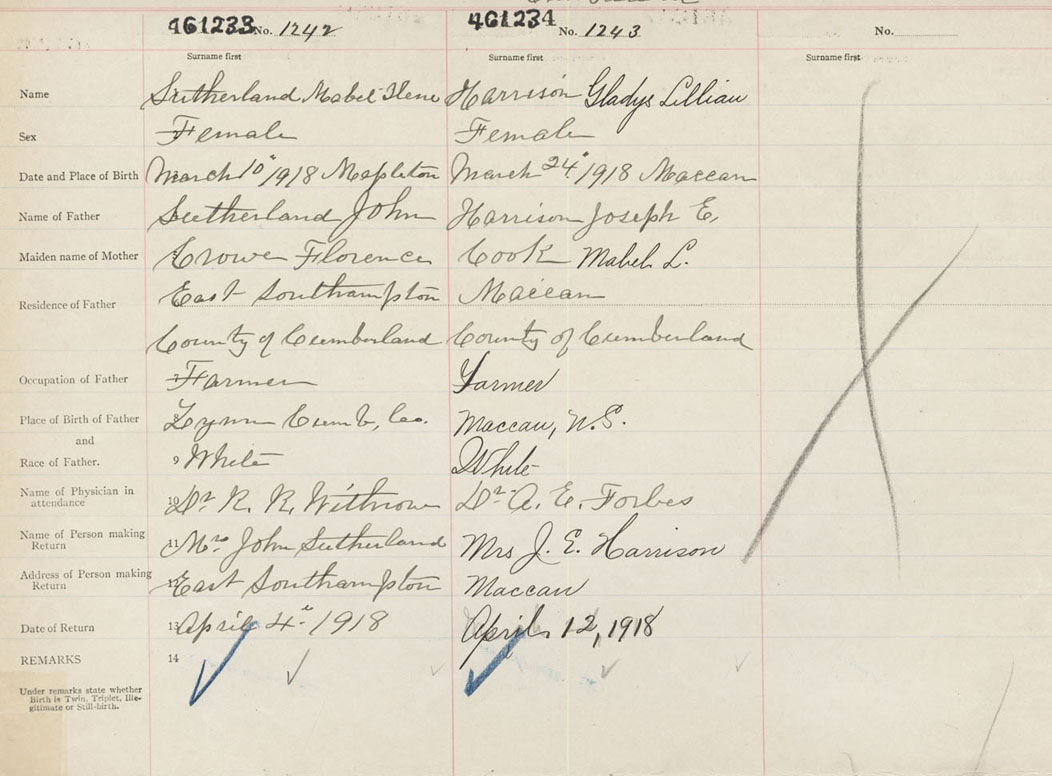 461233 No. 1242 461234 No. 1243 No.
Surname first Surname first Surname first
Name Sutherland Mabel Ilene Harrison Gladys Lillian
Sex Female Female
Date and Place of Birth March 10" 1918 Mapleton March 24" 1918 Maccan
Name of Father Sutherland John Harrison Joseph E.
Maiden name of Mother Crowe Florence Cook Mabel L.
Residence of Father East Southampton Maccan
County of Cumberland County of Cumberland
Occupation of Father 7 Farmer Farmer
Place of Birth of Father Lynn Cumb, Co. Maccan, N.S.
and
Race of Father. 9 White White
Name of Physician in attendance 10 Dr. R. R. Withrow Dr. A. E. Forbes
Name of Person making Return 11 John Sutherland Mrs J. E. Harrison
Address of Person making Return 12 East Southampton Maccan
Date of Return 13 April 4" 1918 April 12, 1918
REMARKS 14
Under remarks state whether
Birth is Twin, Triplet, Ille-
gitimate or Still-birth.